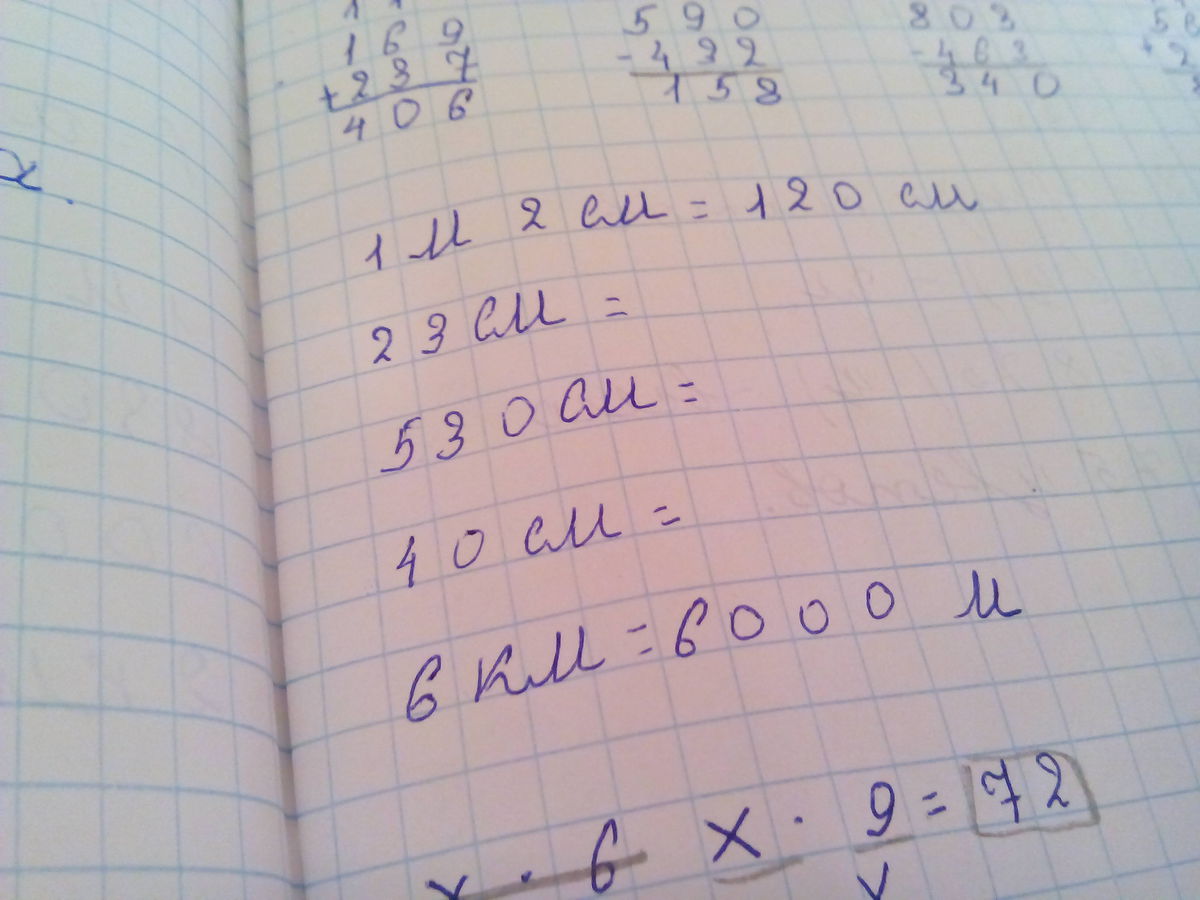 1 6 9
+ 2 3 7
4 0 6
5 9 0
- 4 3 2
1 5 8
8 0 3
- 4 6 3
3 4 0
1 м 2 см = 120 см
23 см =
530 см =
40 см =
6 км = 6000 м
x · 6
x · 9 = 72